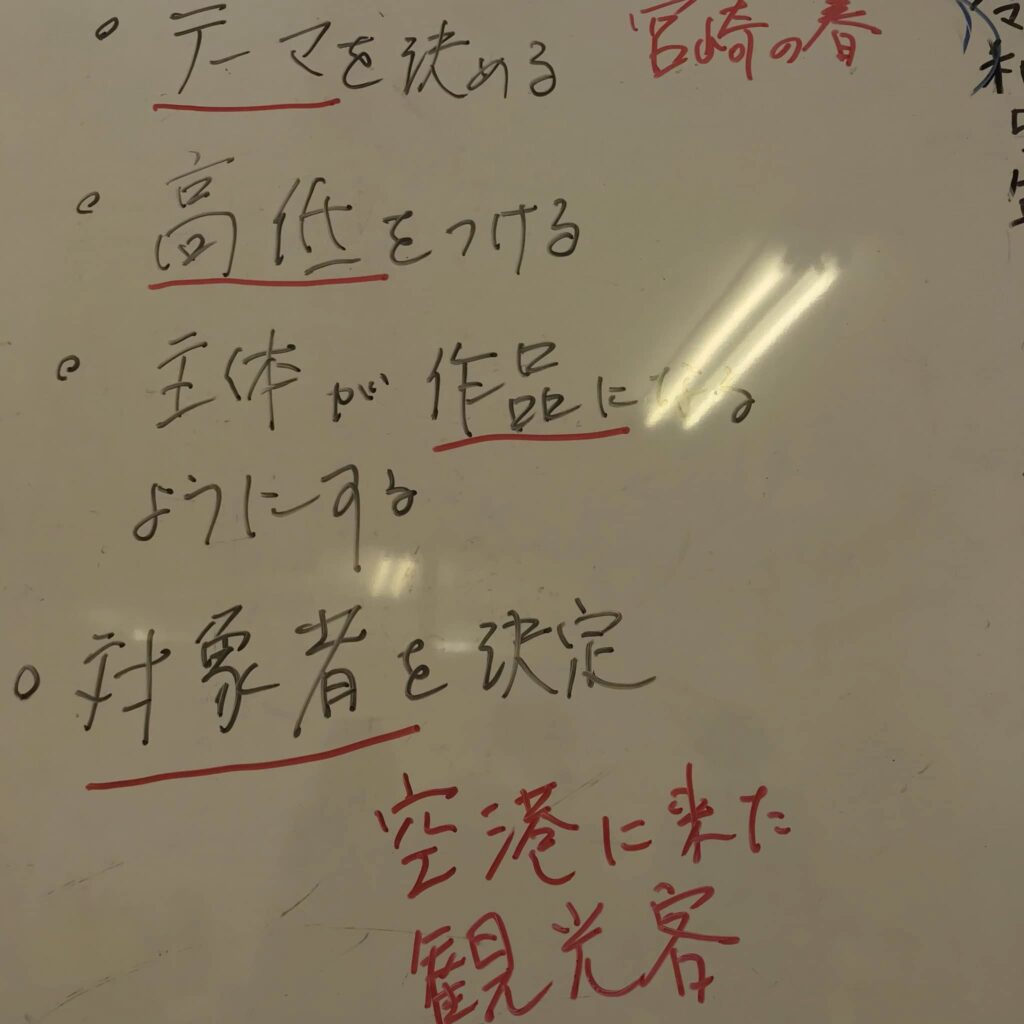 ○ テーマを決める 宮崎の春
○ 高低をつける
○ 主体が作品になる
ようにする
○ 対象者を決定
空港に来た
観光客